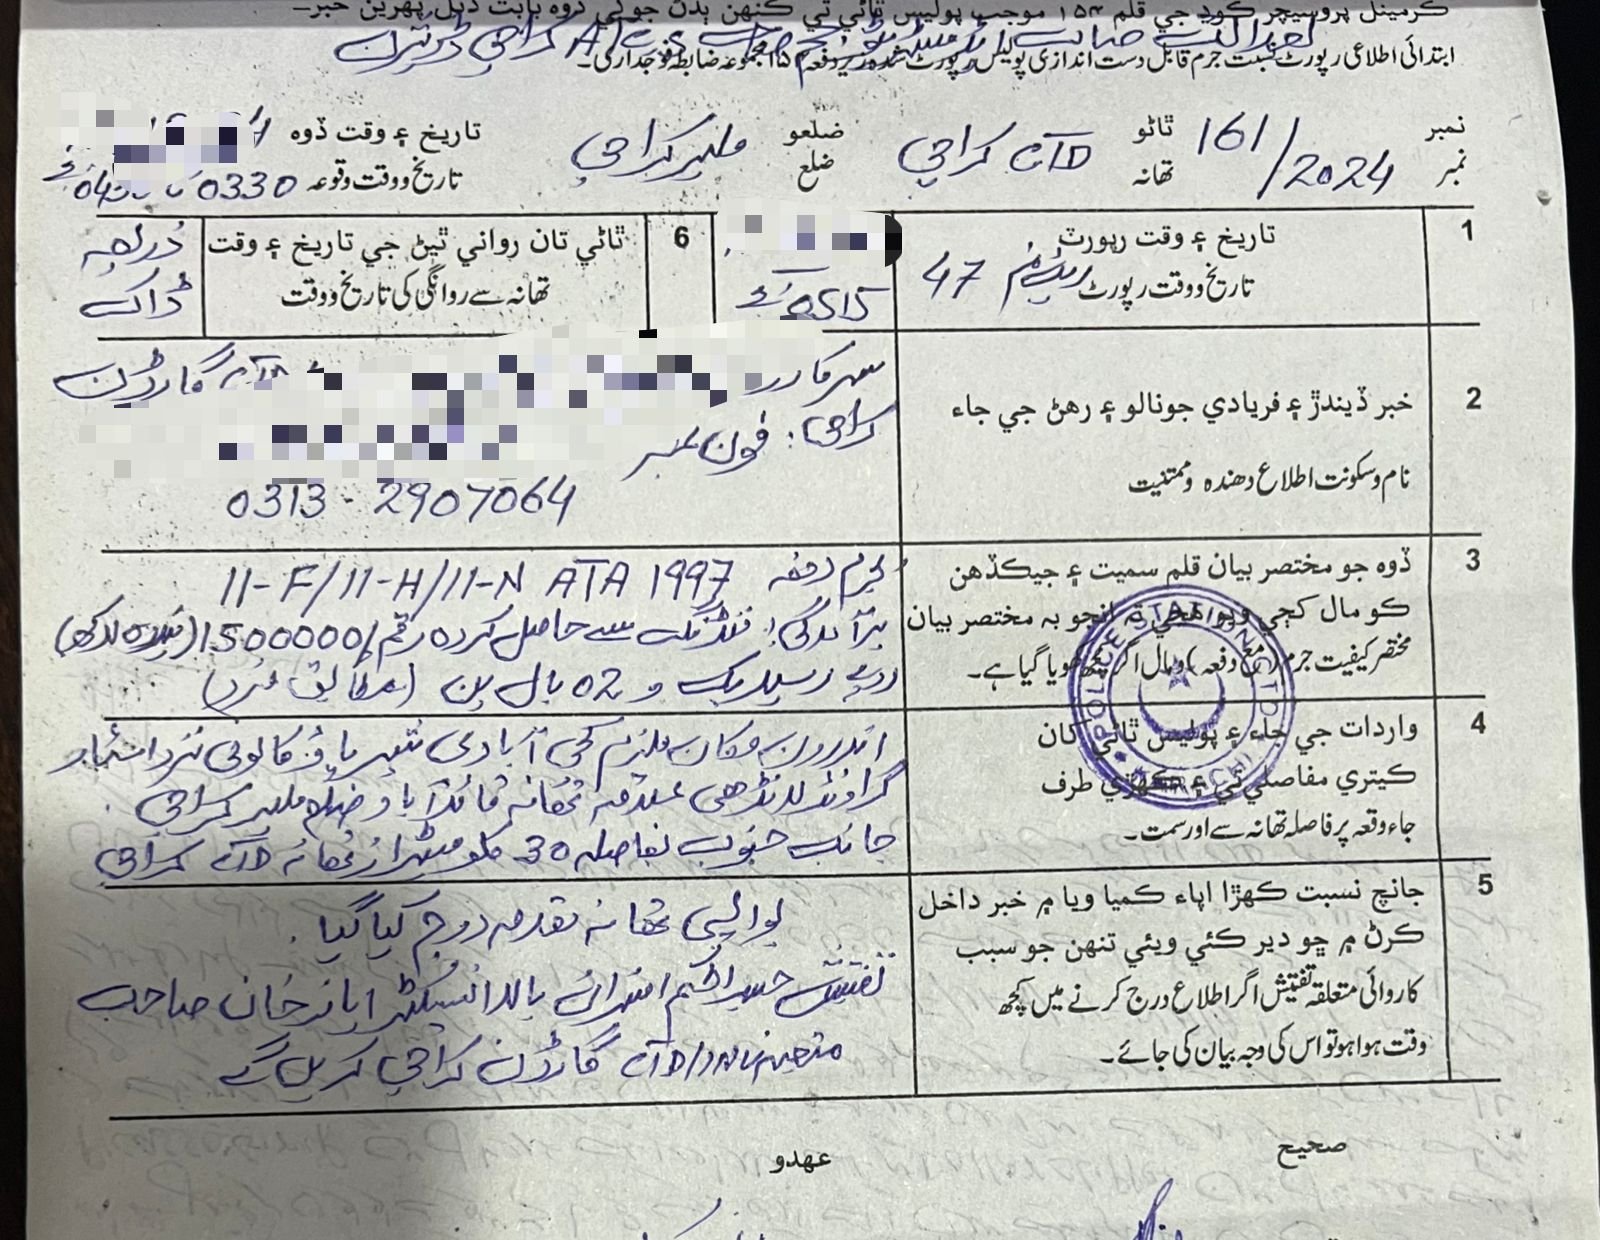 ڪرمينل پروسيچر ڪوڊ جي قلم ۱۵۴ موجب پوليس ٿاڻي تي ڪنهن ٻڌڻ جوڳي ڏوه بابت ڏنل پهرين خبر۔
بعدالت جناب ATC کراچی ڈویژن
ابتدائی اطلاعی رپورٹ نسبت جرم قابل دست اندازی پولیس رپورٹ شدہ زیر دفعہ ۱۵۴ مجموعہ ضابطہ فوجداری۔
نمبر 161/2024 ٿاڻو CTD کراچی ضلعو ملیر کراچی تاريخ ۽ وقت ڏوه
نمبر تھانہ ضلع تاریخ و وقت وقوعہ 0330
1 تاريخ ۽ وقت رپورٽ
تاریخ و وقت رپورٹ 47 0515
6 ٿاڻي تان رواني ٿيڻ جي تاريخ ۽ وقت بذریعہ
تھانہ سے روانگی کی تاریخ و وقت ڈاک
2 خبر ڏيندڙ ۽ فريادي جو نالو ۽ رهڻ جي جاء
نام و سکونت اطلاع دهندہ و ممتنیت
سرکار CTD گارڈن
کراچی۔ فون نمبر
0313 - 2907064
3 ڏوه جو مختصر بيان قلم سميت ۽ جيڪڏهن
ڪو مال کڄي ويو هجي ته انجو به مختصر بيان
مختصر کیفیت جرم (مع دفعہ) و مال اگر کچھ کھویا گیا ہے۔
بجرم دفعہ 11-F/11-H/11-N ATA 1997
برآمدگی: فنڈنگ سے حاصل کردہ رقم 1500000/ (پندرہ لاکھ)
روپے رسید بک و 02 بال پن (مطابق فرد)
POLICE STATION CTD KARACHI
4 واردات جي جاء ۽ پوليس ٿاڻي کان
ڪيتري مفاصلي تي ۽ ڪهڙي طرف
جاء وقعہ پر فاصلہ تھانہ سے اور سمت۔
اندرون مکان ملزم کچی آبادی شیرپاؤ کالونی نزد
گراؤنڈ لانڈھی علاقہ تھانہ قائدآباد ضلع ملیر کراچی۔
جانب جنوب بفاصلہ 30 کلومیٹر از تھانہ CTD کراچی
5 جانچ نسبت ڪهڙا اپاء ڪميا ويا ۾ خبر داخل
ڪرڻ ۾ ڇو دير ڪئي ويئي تنهن جو سبب
کاروائی متعلقہ تفتیش اگر اطلاع درج کرنے میں کچھ
وقت ہوا ہو تو اس کی وجہ بیان کی جائے۔
بواپسی تھانہ مقدمہ درج کیا گیا۔
تفتیش حسب الحکم افسران بالا انسپکٹر ایاز خان صاحب
متعینہ CTD/INV گارڈن کراچی کریں گے
صحيح عهدو